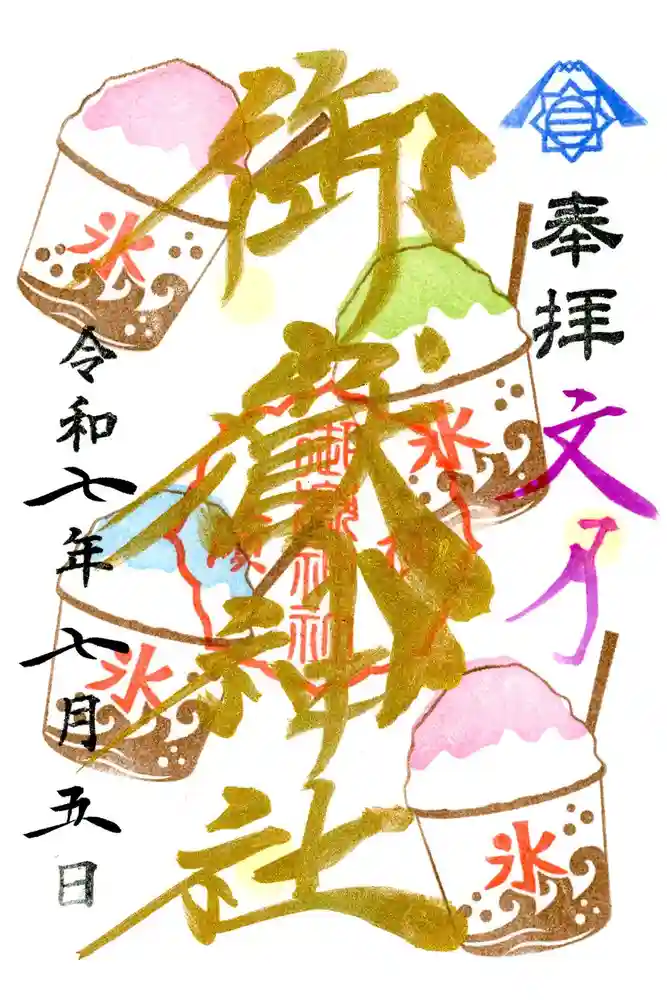 奉拝
文月
御嶽神社
令和七年七月五日
氷
氷
氷
氷